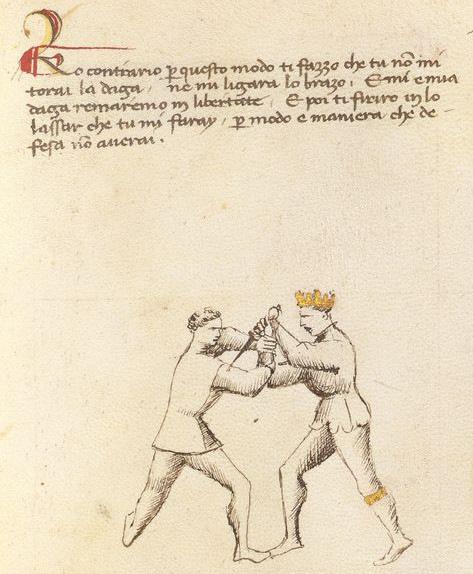 Lo contrario p questo modo ti fazzo che tu nō mi
torai la daga, ne mi ligarai lo brazo. E mi e mia
daga remaremo in libertate. E poi ti feriro in lo
lassar che tu mi faray, p modo e maniera che de-
fesa nō averai.